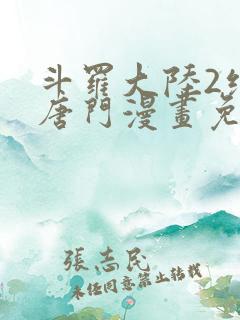 斗羅大陸2
唐門漫畫免
張志民
未經同意禁止轉載